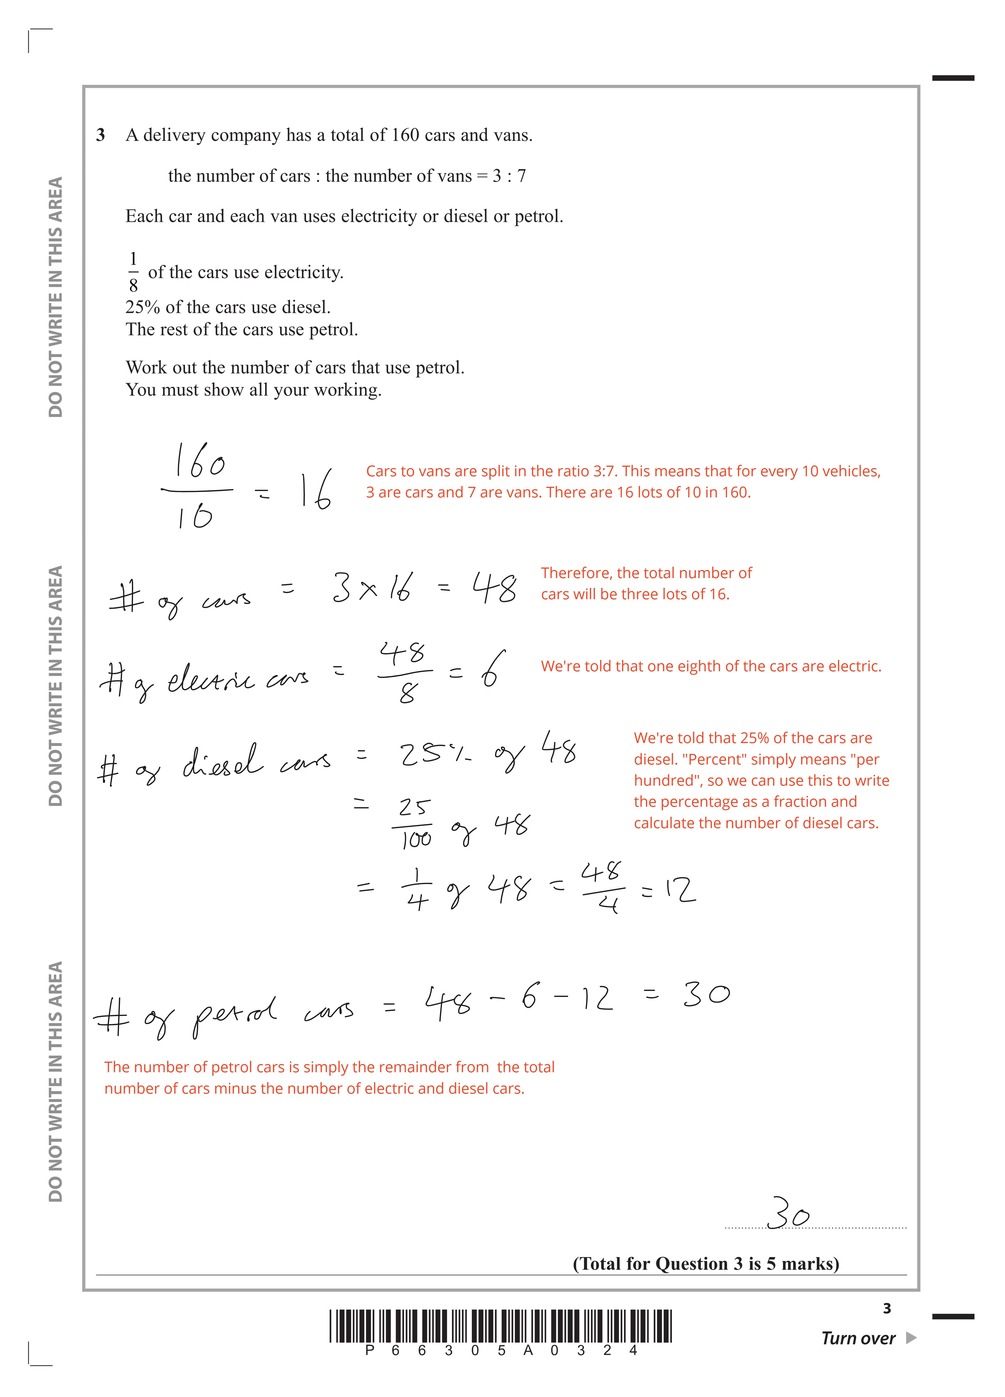 DO NOT WRITE IN THIS AREA
DO NOT WRITE IN THIS AREA
DO NOT WRITE IN THIS AREA
3 A delivery company has a total of 160 cars and vans.
the number of cars : the number of vans = 3 : 7
Each car and each van uses electricity or diesel or petrol.
1/8 of the cars use electricity.
25% of the cars use diesel.
The rest of the cars use petrol.
Work out the number of cars that use petrol.
You must show all your working.
160/10 = 16
Cars to vans are split in the ratio 3:7. This means that for every 10 vehicles,
3 are cars and 7 are vans. There are 16 lots of 10 in 160.
# of cars = 3 × 16 = 48
Therefore, the total number of
cars will be three lots of 16.
# of electric cars = 48/8 = 6
We're told that one eighth of the cars are electric.
# of diesel cars = 25% of 48
= 25/100 of 48
= 1/4 of 48 = 48/4 = 12
We're told that 25% of the cars are
diesel. "Percent" simply means "per
hundred", so we can use this to write
the percentage as a fraction and
calculate the number of diesel cars.
# of petrol cars = 48 - 6 - 12 = 30
The number of petrol cars is simply the remainder from the total
number of cars minus the number of electric and diesel cars.
30
(Total for Question 3 is 5 marks)
P66305A0324
3
Turn over